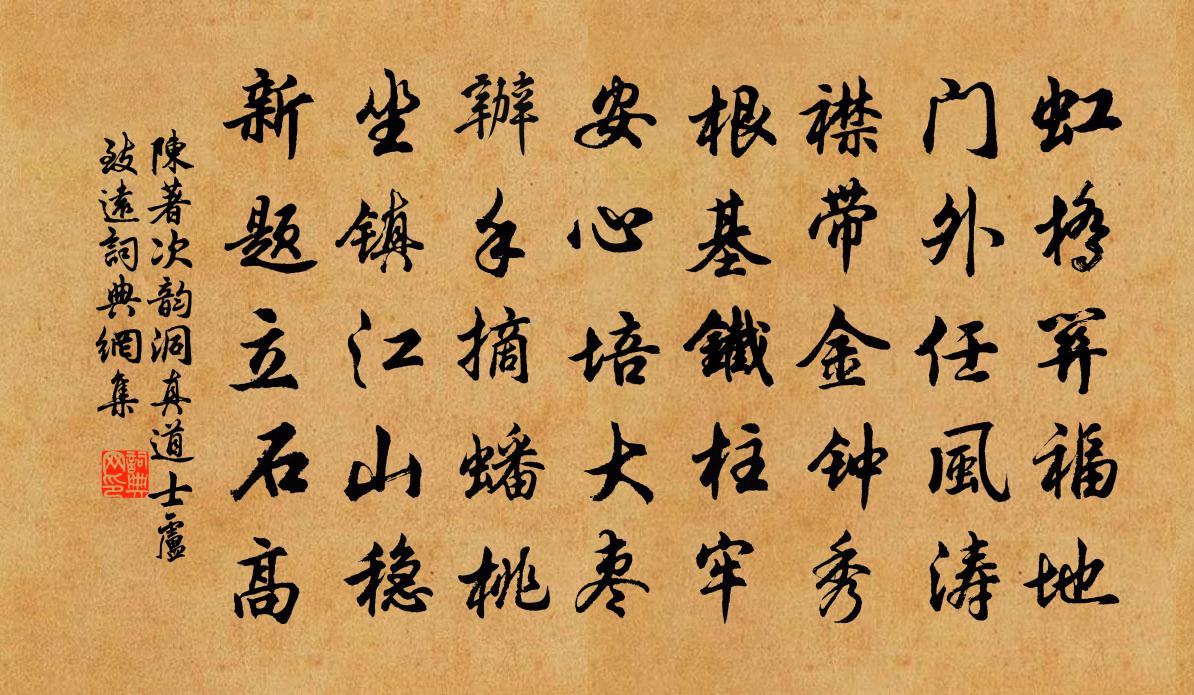 虹橋福地
门外任風涛
襟带金钟秀
根基鐵柱牢
安心培大枣
辦手摘蟠桃
坐镇江山稳
新题立石高
陳著次韵洞真道士盧
致遠詞典網集
詞典
网印